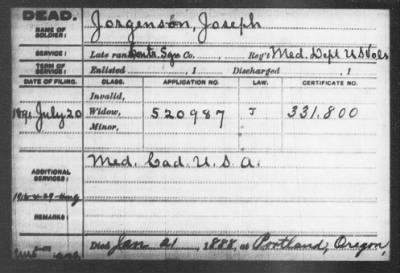 DEAD.
NAME OF SOLDIER: Jorgensen, Joseph
SERVICE: Late rank Contr. Sgn Co. , Reg't Med. Dept U S Vols
TERM OF SERVICE: Enlisted , 1 Discharged , 1
DATE OF FILING. CLASS. APPLICATION NO. LAW. CERTIFICATE NO.
Invalid,
1891 July 20 Widow, 520987 J 331.800
Minor,
ADDITIONAL SERVICES: Med. Cad. U. S. A.
REMARKS:
Died Jan 21, 1888, at Portland, Oregon,